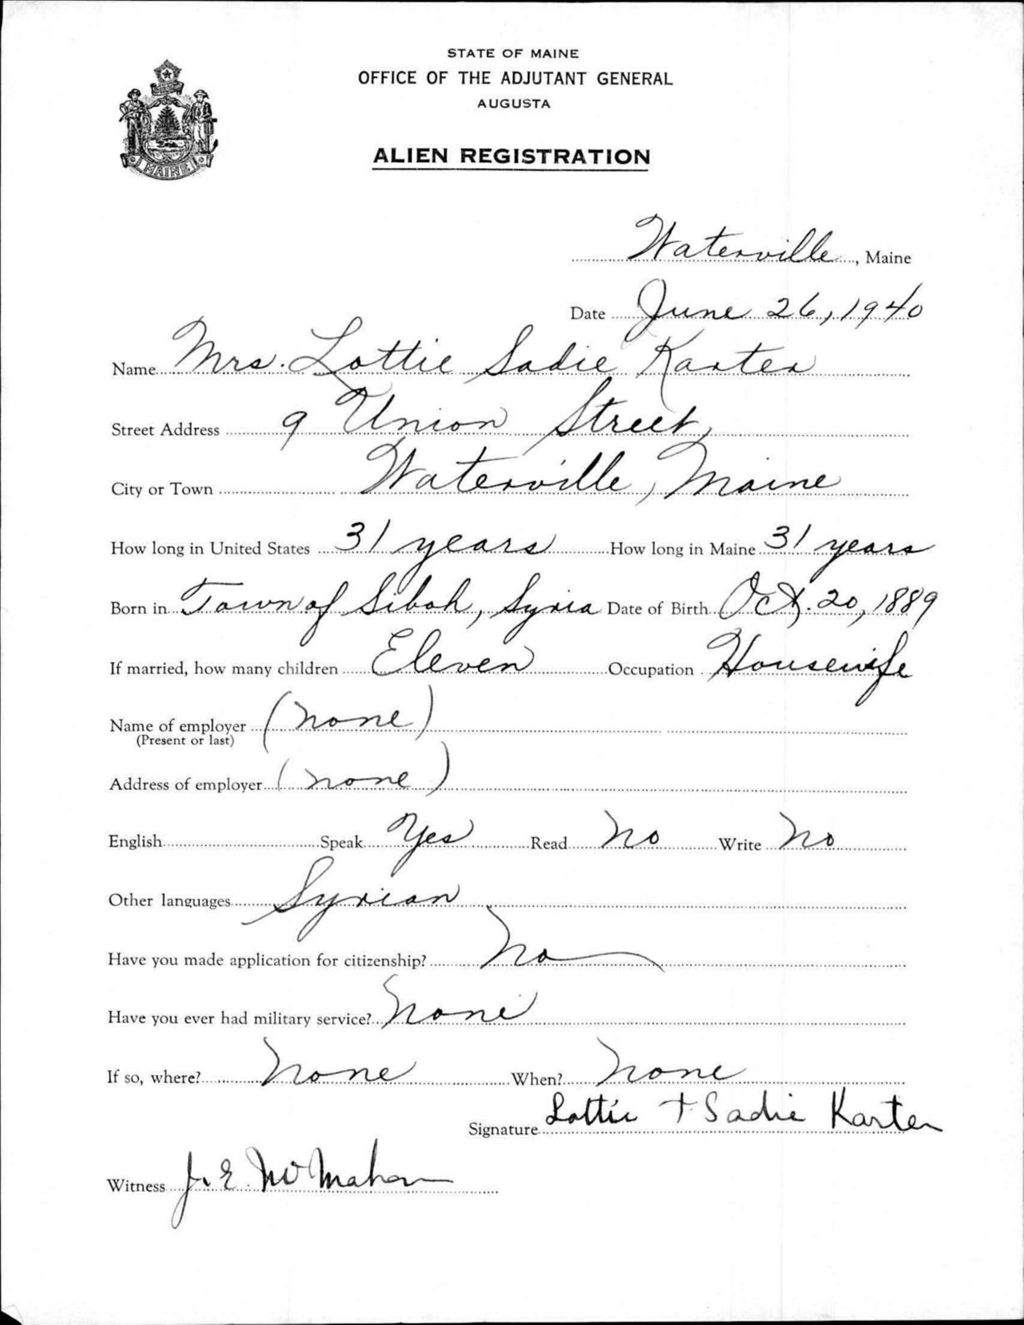 STATE OF MAINE
OFFICE OF THE ADJUTANT GENERAL
AUGUSTA
ALIEN REGISTRATION
MAINE
Waterville, Maine
Date June 26, 1940
Name Mrs. Lottie Sadie Karter
Street Address 9 Union Street,
City or Town Waterville, Maine
How long in United States 31 years How long in Maine 31 years
Born in Town of Sibah, Syria Date of Birth Oct. 20, 1889
If married, how many children Eleven Occupation Housewife
Name of employer (none)
(Present or last)
Address of employer (none)
English Speak Yes Read No Write No
Other languages Syrian
Have you made application for citizenship? No
Have you ever had military service? None
If so, where? None When? None
Signature Lottie + Sadie Karter
Witness J. E. McMahon